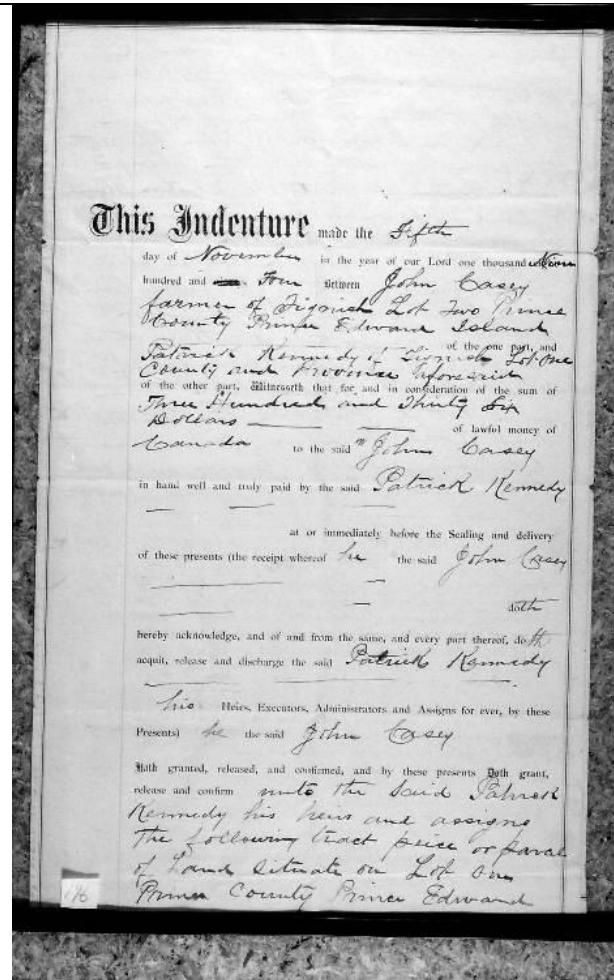 This Indenture made the Fifth
day of November in the year of our Lord one thousand Nine
hundred and Four Between John Casey
farmer of Tignish Lot Two Prince
County Prince Edward Island
of the one part, and
Patrick Kennedy of Tignish Lot One
County and Province aforesaid
of the other part, Witnesseth that for and in consideration of the sum of
Three Hundred and Thirty Six
Dollars of lawful money of
Canada to the said John Casey
in hand well and truly paid by the said Patrick Kennedy
at or immediately before the Sealing and delivery
of these presents (the receipt whereof he the said John Casey
doth
hereby acknowledge, and of and from the same, and every part thereof, doth
acquit, release and discharge the said Patrick Kennedy
his Heirs, Executors, Administrators and Assigns for ever, by these
Presents) he the said John Casey
Hath granted, released, and confirmed, and by these presents Doth grant,
release and confirm unto the said Patrick
Kennedy his heirs and assigns
the following tract peice or parcel
of Land situate on Lot One
Prince County Prince Edward
196